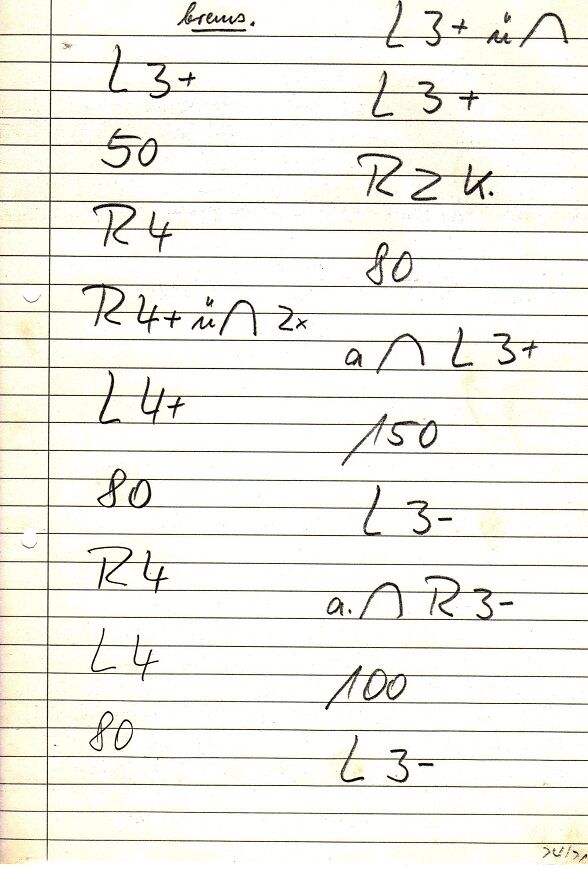 brems.
L 3+
50
R 4
R 4+ ü∩ 2x
L 4+
80
R 4
L 4
80
L 3+ ü∩
L 3+
R 2 K.
80
a ∩ L 3+
150
L 3-
a. ∩ R 3-
100
L 3-